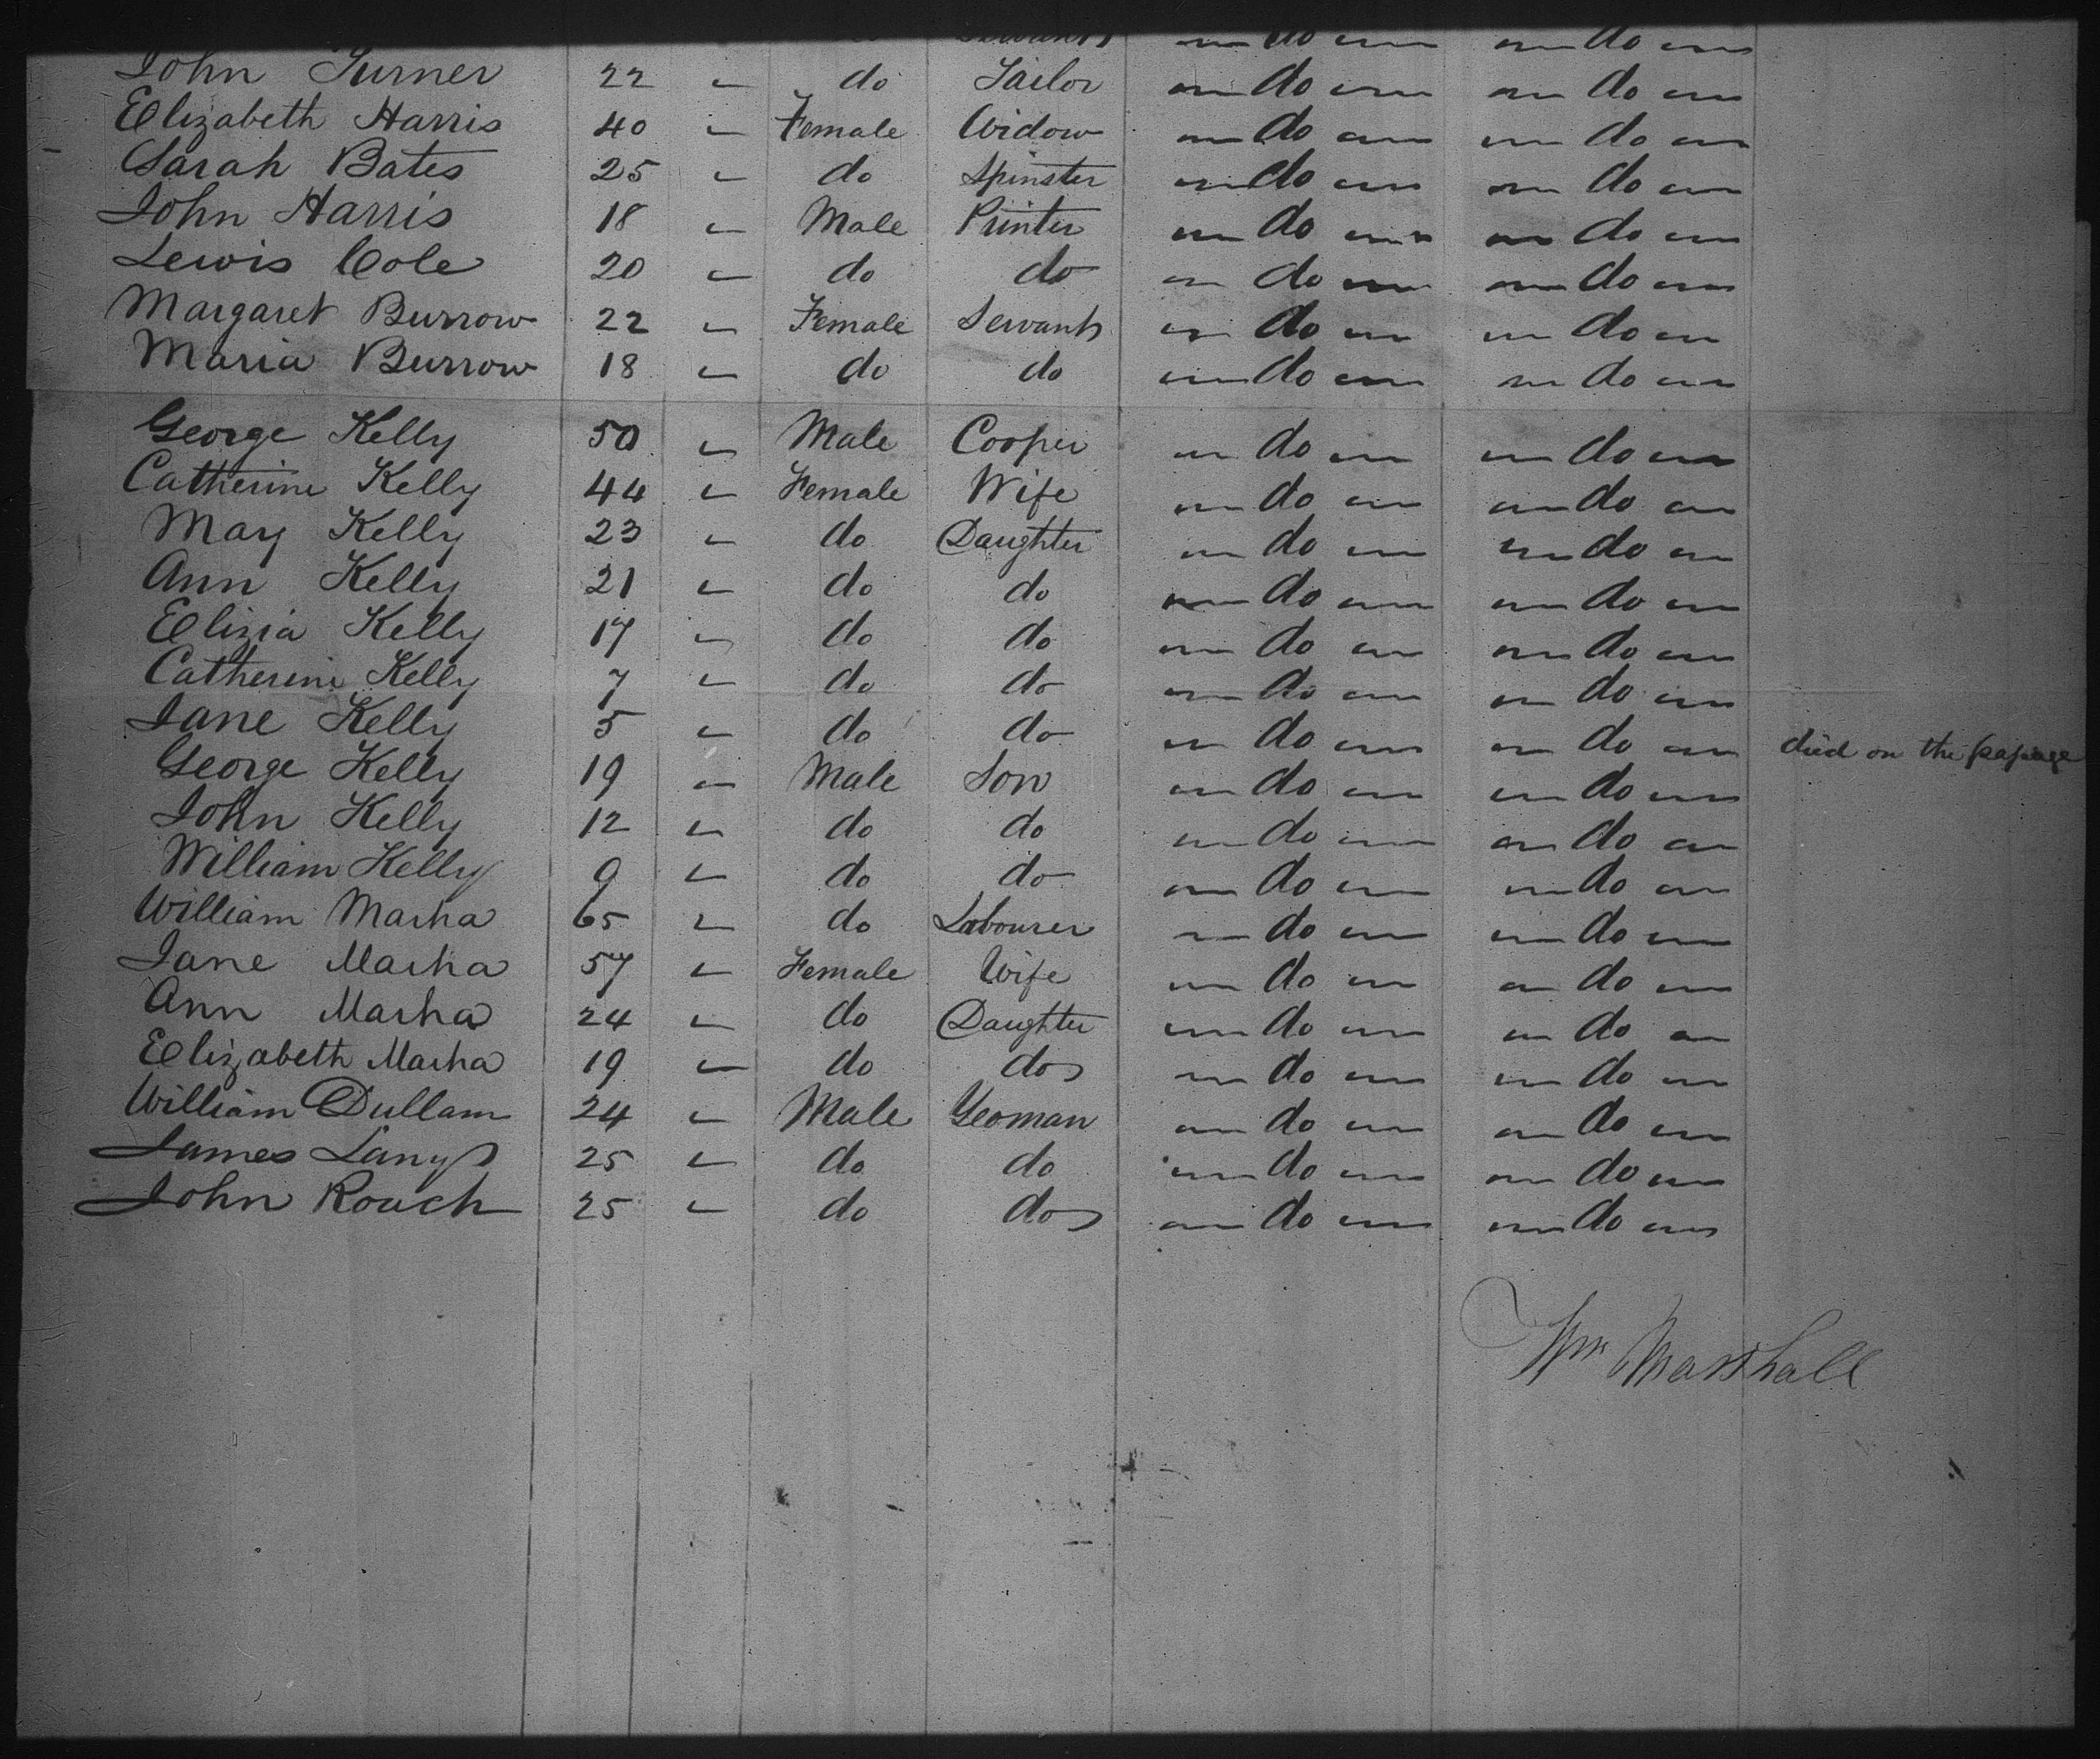 do do
John Turner 22 " do Tailor do do
Elizabeth Harris 40 " Female Widow do do
Sarah Bates 25 " do Spinster do do
John Harris 18 " Male Printer do do
Lewis Cole 20 " do do do do
Margaret Burrow 22 " Female Servant do do
Maria Burrow 18 " do do do do
George Kelly 50 " Male Cooper do do
Catherine Kelly 44 " Female Wife do do
Mary Kelly 23 " do Daughter do do
Ann Kelly 21 " do do do do
Eliza Kelly 17 " do do do do
Catherine Kelly 7 " do do do do
Jane Kelly 5 " do do do do died on the passage
George Kelly 19 " Male Son do do
John Kelly 12 " do do do do
William Kelly 9 " do do do do
William Marha 65 " do Labourer do do
Jane Marha 57 " Female Wife do do
Ann Marha 24 " do Daughter do do
Elizabeth Marha 19 " do do do do
William Dullam 24 " Male Yeoman do do
James 25 " do do do do
John Roach 25 " do do do do
Wm Marshall